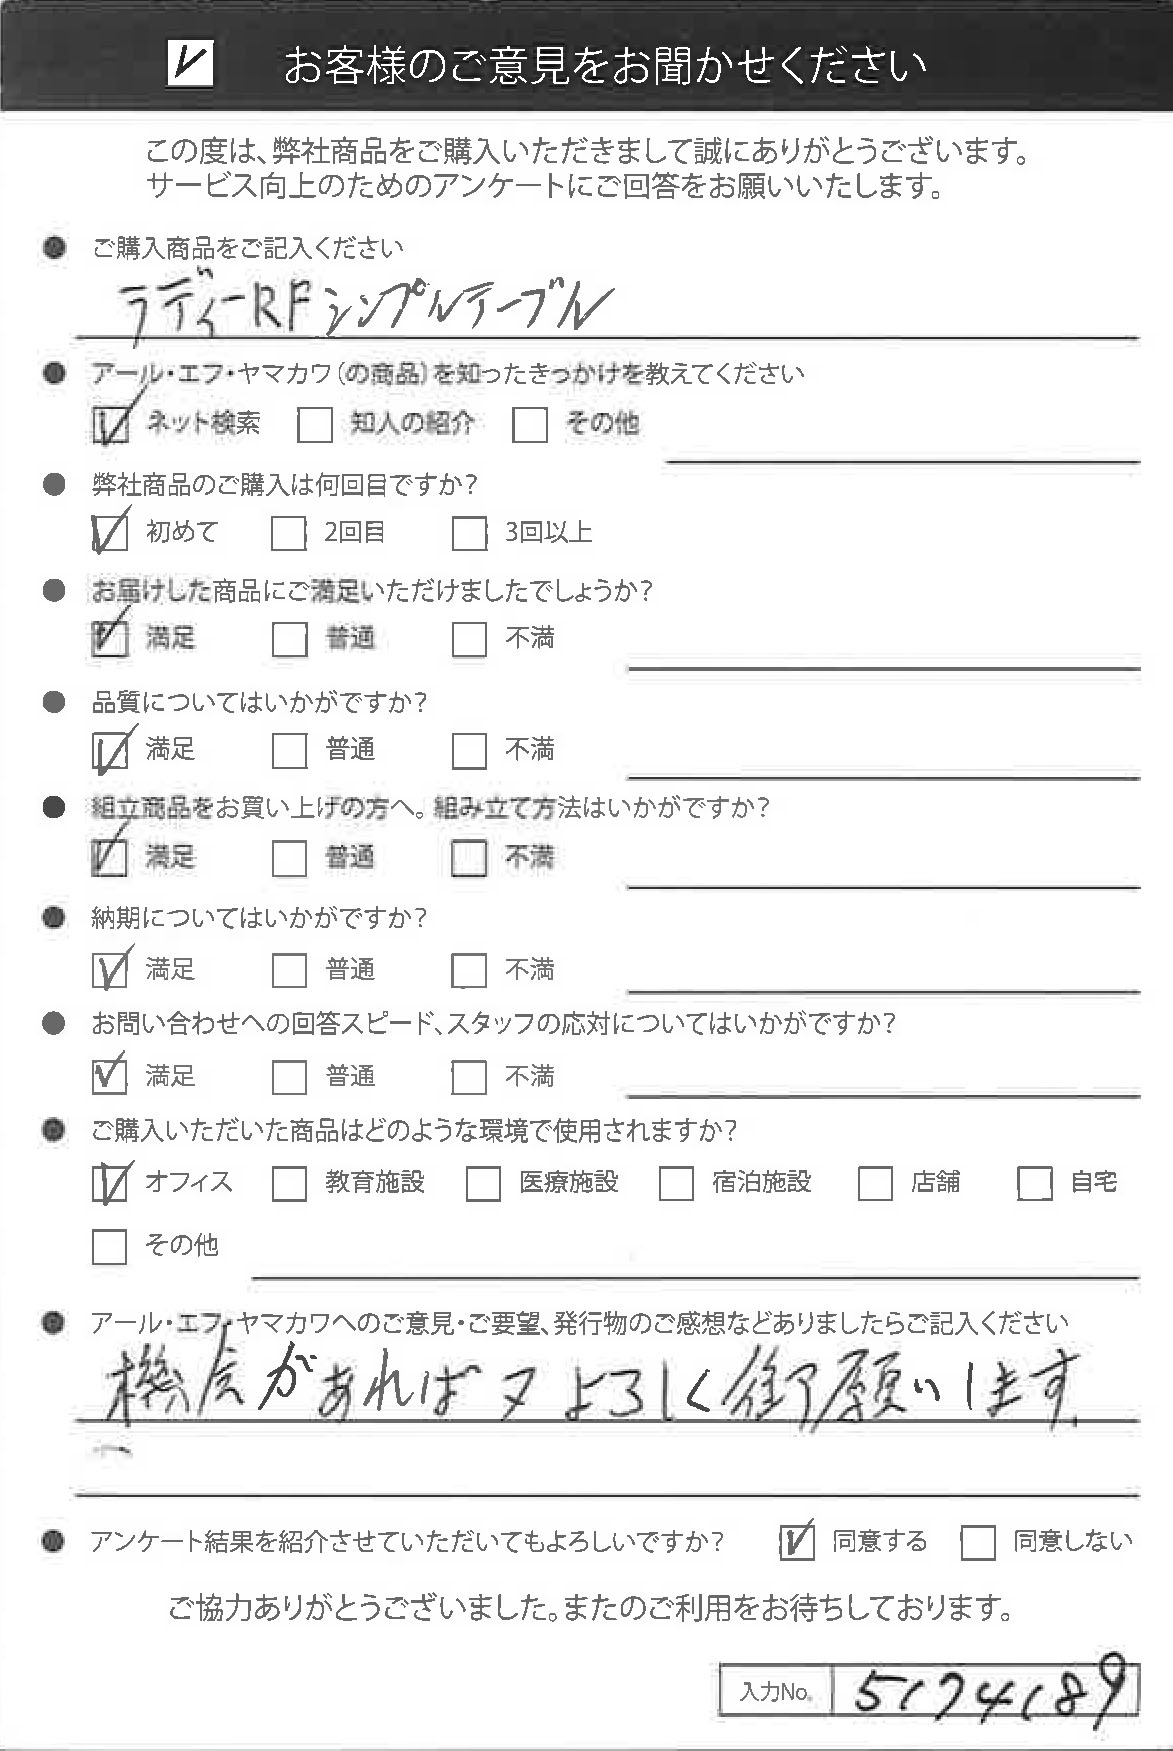 お客様のご意見をお聞かせください
この度は、弊社商品をご購入いただきまして誠にありがとうございます。
サービス向上のためのアンケートにご回答をお願いいたします。
● ご購入商品をご記入ください
ラディーRFシンプルテーブル
● アール・エフ・ヤマカワ(の商品)を知ったきっかけを教えてください
☑ ネット検索 □ 知人の紹介 □ その他
● 弊社商品のご購入は何回目ですか?
☑ 初めて □ 2回目 □ 3回以上
● お届けした商品にご満足いただけましたでしょうか?
☑ 満足 □ 普通 □ 不満
● 品質についてはいかがですか?
☑ 満足 □ 普通 □ 不満
● 組立商品をお買い上げの方へ。組み立て方法はいかがですか?
☑ 満足 □ 普通 □ 不満
● 納期についてはいかがですか?
☑ 満足 □ 普通 □ 不満
● お問い合わせへの回答スピード、スタッフの応対についてはいかがですか?
☑ 満足 □ 普通 □ 不満
● ご購入いただいた商品はどのような環境で使用されますか?
☑ オフィス □ 教育施設 □ 医療施設 □ 宿泊施設 □ 店舗 □ 自宅
□ その他
● アール・エフ・ヤマカワへのご意見・ご要望、発行物のご感想などありましたらご記入ください
機会があれば又よろしく御願いします.
● アンケート結果を紹介させていただいてもよろしいですか? ☑ 同意する □ 同意しない
ご協力ありがとうございました。またのご利用をお待ちしております。
入力No. 5174189